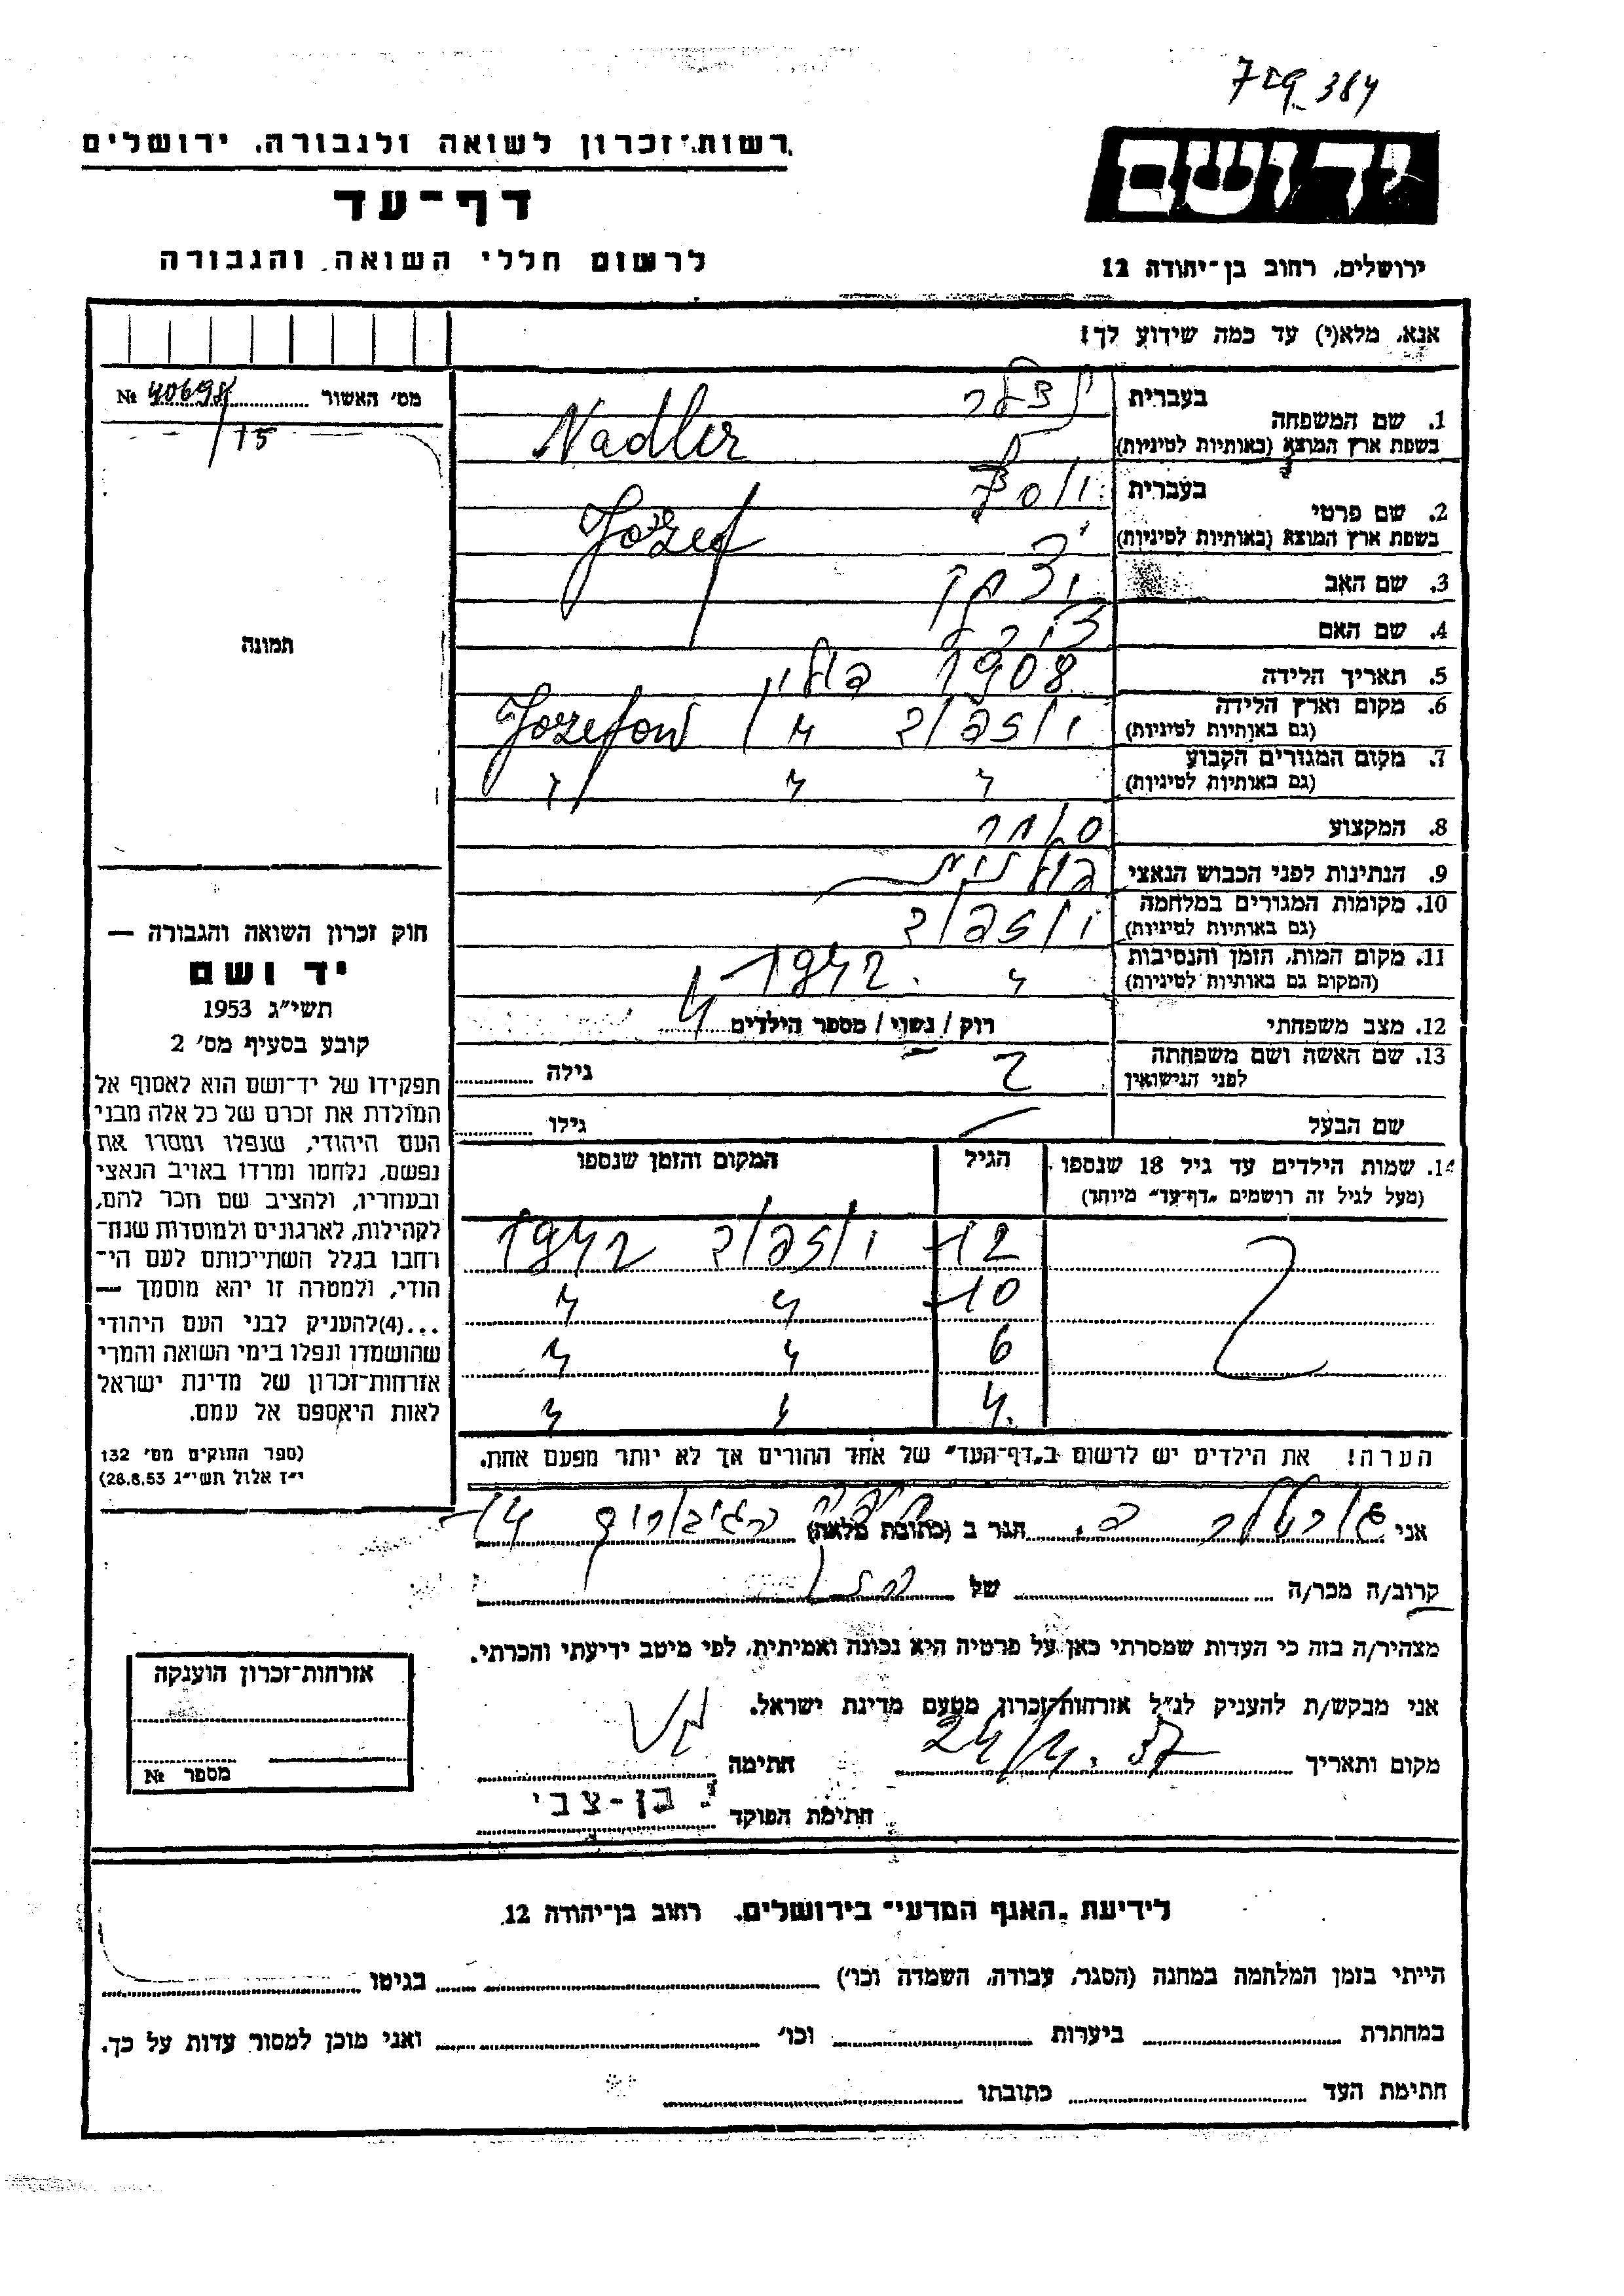 384
רשות זכרון לשואה ולגבורה, ירושלים
יד ושם
דף-עד
לרשום חללי השואה והגבורה
ירושלים, רחוב בן-יהודה 12
אנא, מלא(י) עד כמה שידוע לך!
מס׳ האשור № 40698
/75
תמונה
1. שם המשפחה
בעברית נדלר
בשפת ארץ המוצא (באותיות לטיניות) Nadler
2. שם פרטי
בעברית יוסף
בשפת ארץ המוצא (באותיות לטיניות) Józef
3. שם האב יצחק
4. שם האם
5. תאריך הלידה 1908 פולין
6. מקום וארץ הלידה
(גם באותיות לטיניות) יוזפוב " Jozefow
7. מקום המגורים הקבוע
(גם באותיות לטיניות) " " "
8. המקצוע סוחר
9. הנתינות לפני הכבוש הנאצי פולנית
10. מקומות המגורים במלחמה
(גם באותיות לטיניות) יוזפוב
11. מקום המות, הזמן והנסיבות
(המקום גם באותיות לטיניות) " 1942
12. מצב משפחתי רווק / נשוי / מספר הילדים 4
13. שם האשה ושם משפחתה
לפני הנישואין ? גילה
שם הבעל — גילו
14. שמות הילדים עד גיל 18 שנספו הגיל המקום והזמן שנספו
(מעל לגיל זה רושמים „דף-עד״ מיוחד)
12 יוזפוב 1942
10 " "
6 " "
4 " "
הערה! את הילדים יש לרשום ב„דף-העד״ של אחד ההורים אך לא יותר מפעם אחת.
חוק זכרון השואה והגבורה —
יד ושם
תשי״ג 1953
קובע בסעיף מס׳ 2
תפקידו של יד-ושם הוא לאסוף אל
המולדת את זכרם של כל אלה מבני
העם היהודי, שנפלו ומסרו את
נפשם, נלחמו ומרדו באויב הנאצי
ובעוזריו, ולהציב שם וזכר להם,
לקהילות, לארגונים ולמוסדות שנח-
רחבו בגלל השתייכותם לעם הי-
הודי, ולמטרה זו יהא מוסמך —
...(4)להעניק לבני העם היהודי
שהושמדו ונפלו בימי השואה והמרי
אזרחות-זכרון של מדינת ישראל
לאות היאספם אל עמם.
(ספר החוקים מס׳ 132
י״ז אלול תשי״ג 28.8.53)
אני גר ב (כתובת מלאה) חיפה 14
קרוב/ה מכר/ה של
מצהיר/ה בזה כי העדות שמסרתי כאן על פרטיה היא נכונה ואמיתית, לפי מיטב ידיעתי והכרתי.
אני מבקש/ת להעניק לנ״ל אזרחות-זכרון מטעם מדינת ישראל.
מקום ותאריך 24/4. 57 חתימה
חתימת הפוקד י. בן-צבי
אזרחות-זכרון הוענקה
מספר №
לידיעת „האגף המדעי״ בירושלים, רחוב בן-יהודה 12
הייתי בזמן המלחמה במחנה (הסגר, עבודה, השמדה וכו׳) בגיטו
במחתרת ביערות וכו׳ ואני מוכן למסור עדות על כך.
חתימת העד כתובתו